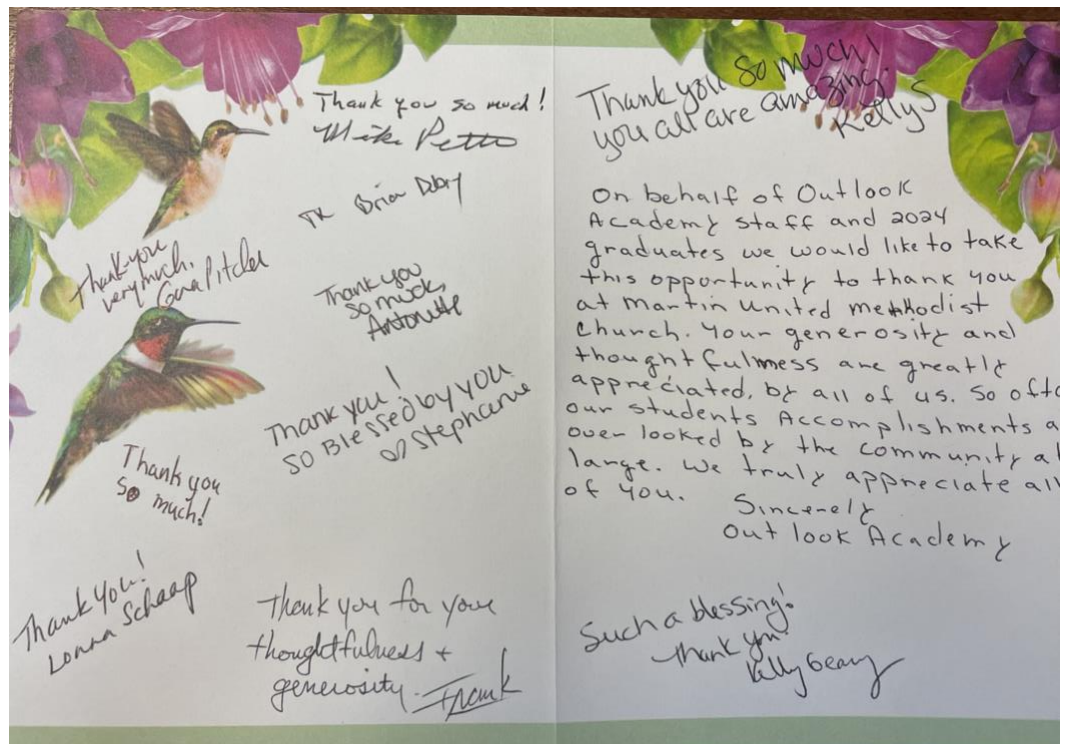 Thank you so much!
Mike Petto
TK Brian
Thank you
very much,
Thank you
so much,
Antonette
Thank you!
SO Blessed by you
Stephanie
Thank you
so much!
Thank You!
Lonna Schaap
Thank you for your
thoughtfulness +
generosity. Frank
Thank you so much!
you all are amazing.
Kelly S
On behalf of Outlook
Academy staff and 2024
graduates we would like to take
this opportunity to thank you
at Martin United methodist
church. Your generosity and
thoughtfulness are greatly
appreciated, by all of us. So ofte
our students Accomplishments a
over looked by the community a
large. We truly appreciate all
of you.
Sincerely
Outlook Academy
Such a blessing!
Thank you.
Kelly Geary